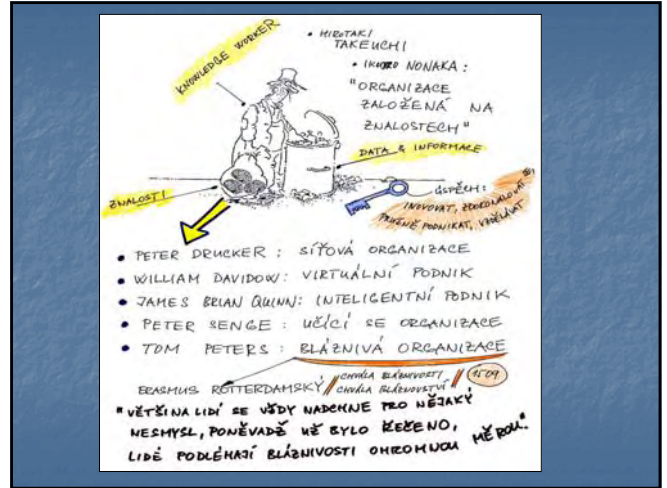 KNOWLEDGE WORKER
• HIROTAKI
TAKEUCHI
• IKUJIRO NONAKA :
"ORGANIZACE
ZALOŽENÁ NA
ZNALOSTECH"
DATA & INFORMACE
ZNALOSTI
ÚSPĚCH:
INOVOVAT, ZDOKONALOVAT SE,
PRUŽNĚ PODNIKAT, VZDĚLÁVAT
• PETER DRUCKER : SÍŤOVÁ ORGANIZACE
• WILLIAM DAVIDOW: VIRTUÁLNÍ PODNIK
• JAMES BRIAN QUINN: INTELIGENTNÍ PODNIK
• PETER SENGE : UČÍCÍ SE ORGANIZACE
• TOM PETERS : BLÁZNIVÁ ORGANIZACE
ERASMUS ROTTERDAMSKÝ // CHVÁLA BLÁZNIVOSTI // 1509
CHVÁLA BLÁZNOVSTVÍ
"VĚTŠINA LIDÍ SE VŽDY NADCHNE PRO NĚJAKÝ
NESMYSL, PONĚVADŽ UŽ BYLO ŘEČENO,
LIDÉ PODLÉHAJÍ BLÁZNIVOSTI OHROMNOU MĚROU."